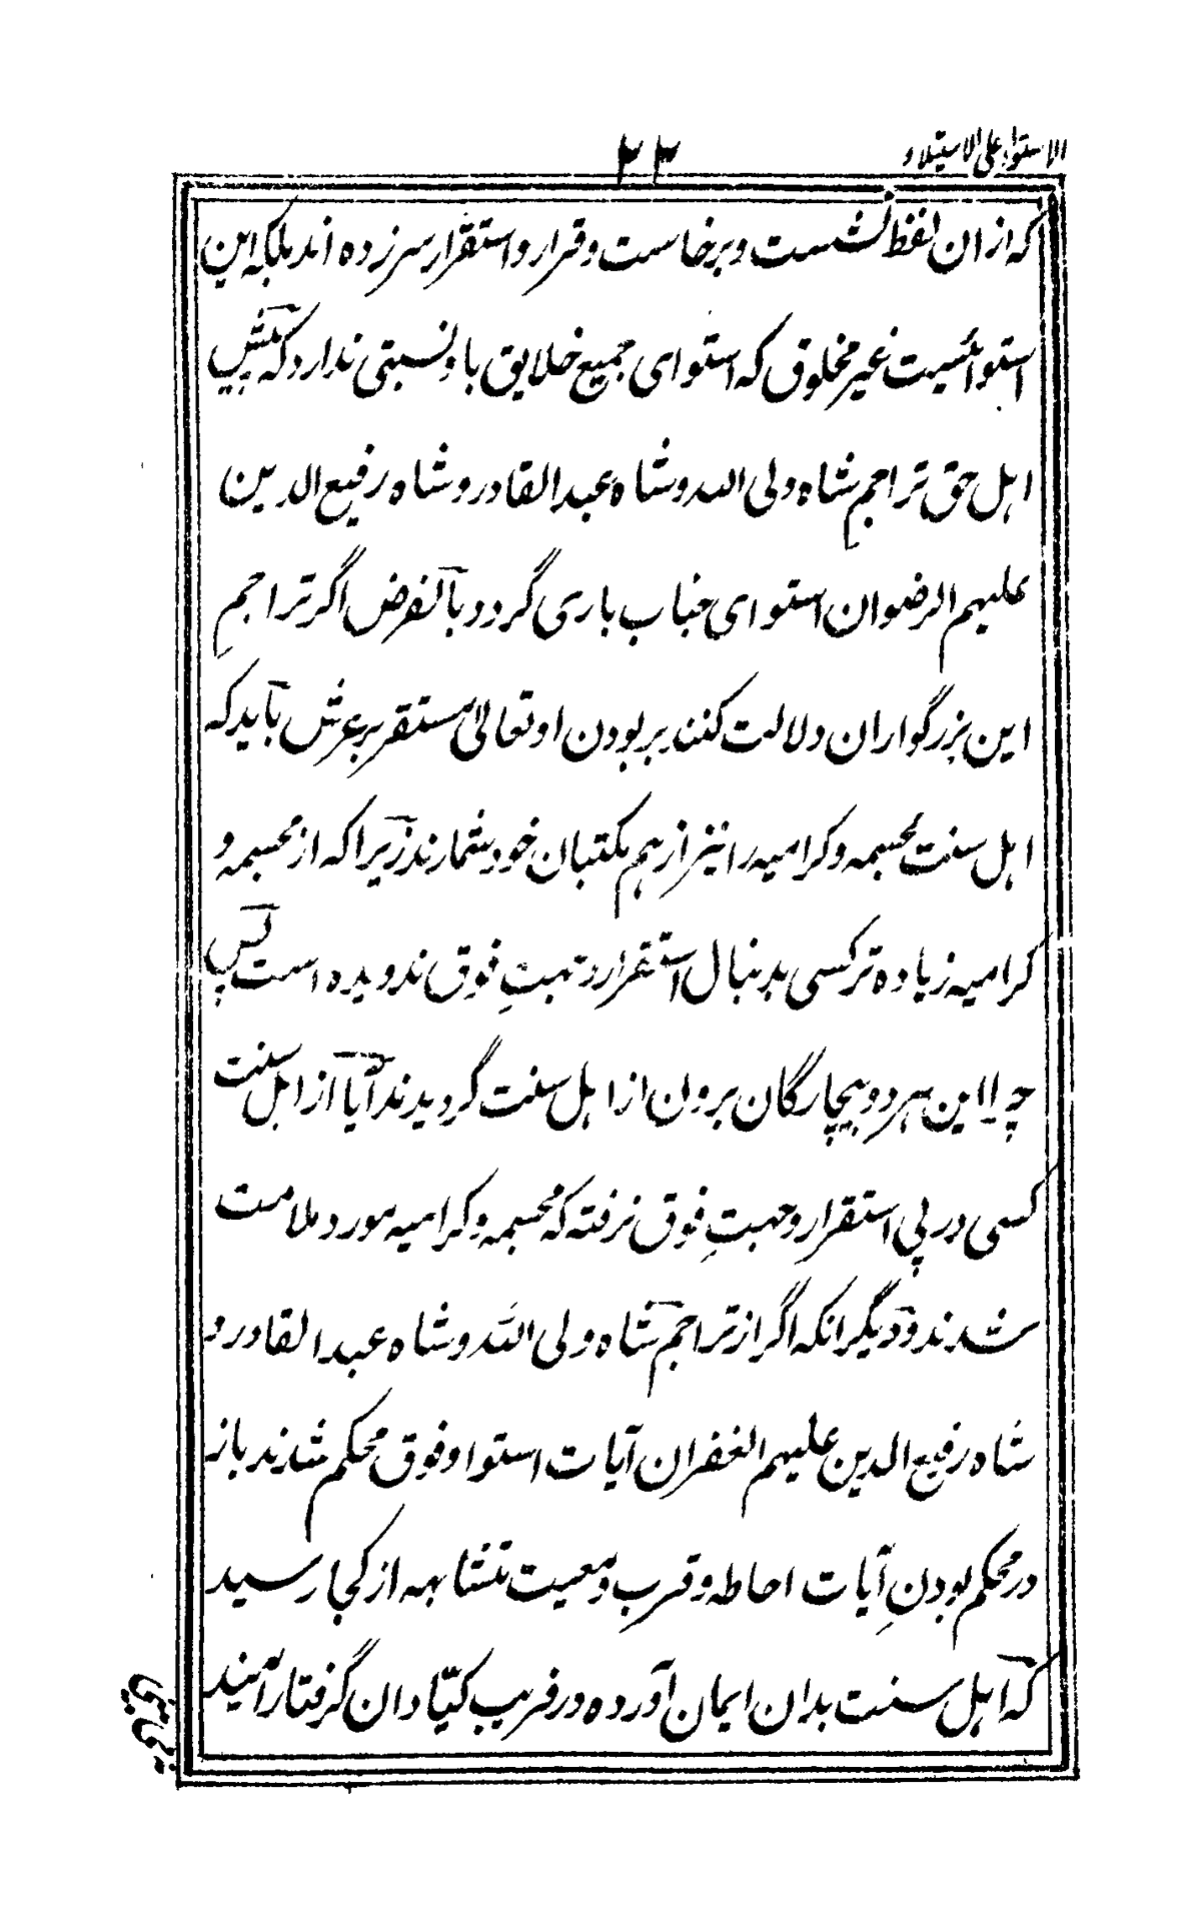 الاستواء علی الاستیلاء
۲۳
که ازان لفظ نشست وبرخاست وقرار واستقرار سرزده اند بلکه این
استوائیست غیر مخلوق که استوای جمیع خلایق باو نسبتی ندارد که پیش
اهل حق تراجم شاه ولی الله وشاه عبدالقادر وشاه رفیع الدین
علیهم الرضوان استوای جناب باری گردد بالفرض اگر تراجم
این بزرگواران دلالت کنند بر بودن او تعالی مستقر بر عرش باید که
اهل سنت مجسمه وکرامیه را نیز از هم مکتبان خود شمارند زیرا که از مجسمه و
کرامیه زیاده تر کسی بدنبال استقرار وجهتِ فوق ندویده است پس
چرا این هر دو بیچارگان برون از اهل سنت گردیدند آیا از اهل سنت
کسی در پی استقرار وجهتِ فوق نرفته که مجسمه وکرامیه مورد ملامت
شدند ودیگر انکه اگر از تراجم شاه ولی الله وشاه عبدالقادر و
شاه رفیع الدین علیهم الغفران آیات استوا وفوق محکم شدند باز
در محکم بودنِ آیات احاطه وقرب ومعیت متشابهه از کجا رسید
که اهل سنت بدان ایمان آورده در فریب کیّادان گرفتار آمیند